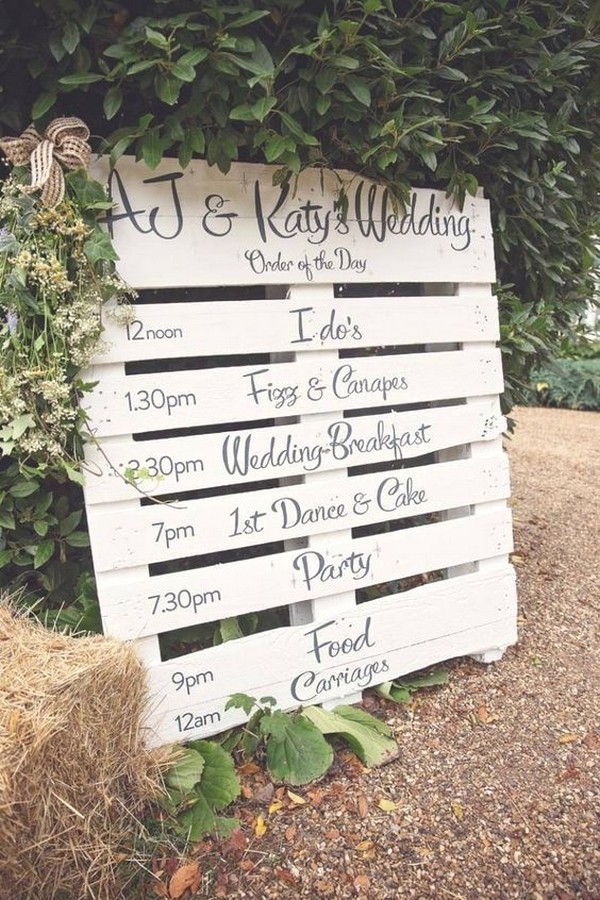 AJ & Katy's Wedding
Order of the Day
12noon I do's
1.30pm Fizz & Canapes
3.30pm Wedding Breakfast
7pm 1st Dance & Cake
7.30pm Party
9pm Food
12am Carriages